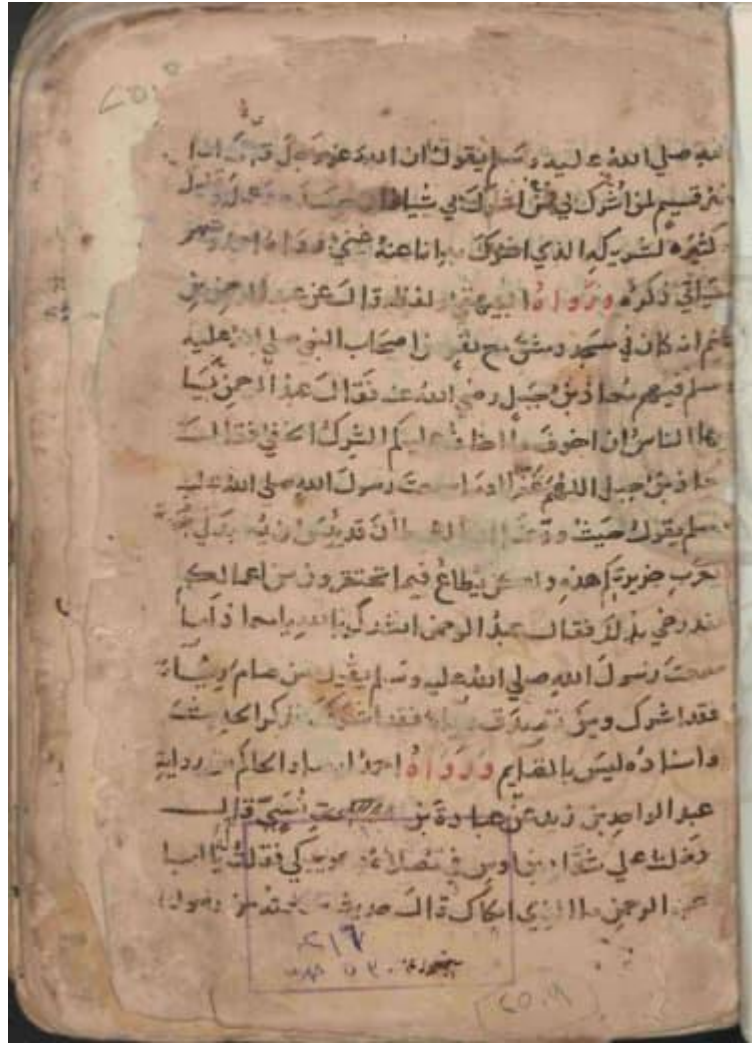 الله صلي الله عليه وسلم يقول ان الله عز وجل قال انا
خير قسيم لمن اشرك بي من اشرك بي شيا فان وعمله قليله
كثيره لشريكه الذي اشرك به انا عنه غني ورواه احمد وشهر
سياتي ذكره ورواه البيهقي ولفظه قال عن عبد الرحمن بن
غنم انه كان في مسجد دمشق مع نفر من اصحاب النبي صلي الله عليه
وسلم فيهم معاذ بن جبل رضي الله عنه فقال عبد الرحمن يا
يها الناس ان اخوف ما اخاف عليكم الشرك الخفي فقال
معاذ بن جبل اللهم غفرا اوما سمعت رسول الله صلي الله عليه
وسلم يقول حيث ودعنا ان الشيطان قد يئس ان يعبد في
جزيرتكم هذه ولكن يطاع فيما تحتقرون من اعمالكم
فقد رضي بذلك فقال عبد الرحمن انشدك بالله يا معاذ اما
سمعت رسول الله صلي الله عليه وسلم يقول من صام رياء
فقد اشرك ومن تصدق رياء فقد اشرك فذكر الحديث
واسناده ليس بالقايم ورواه احمد ايضا والحاكم من رواية
عبد الواحد بن زيد عن عبادة بن نسي قال
دخلت علي شداد بن اوس في مصلاه وهو يبكي فقلت يا ابا
عبد الرحمن ما الذي ابكاك قال حديث سمعته من رسول
٢١٦